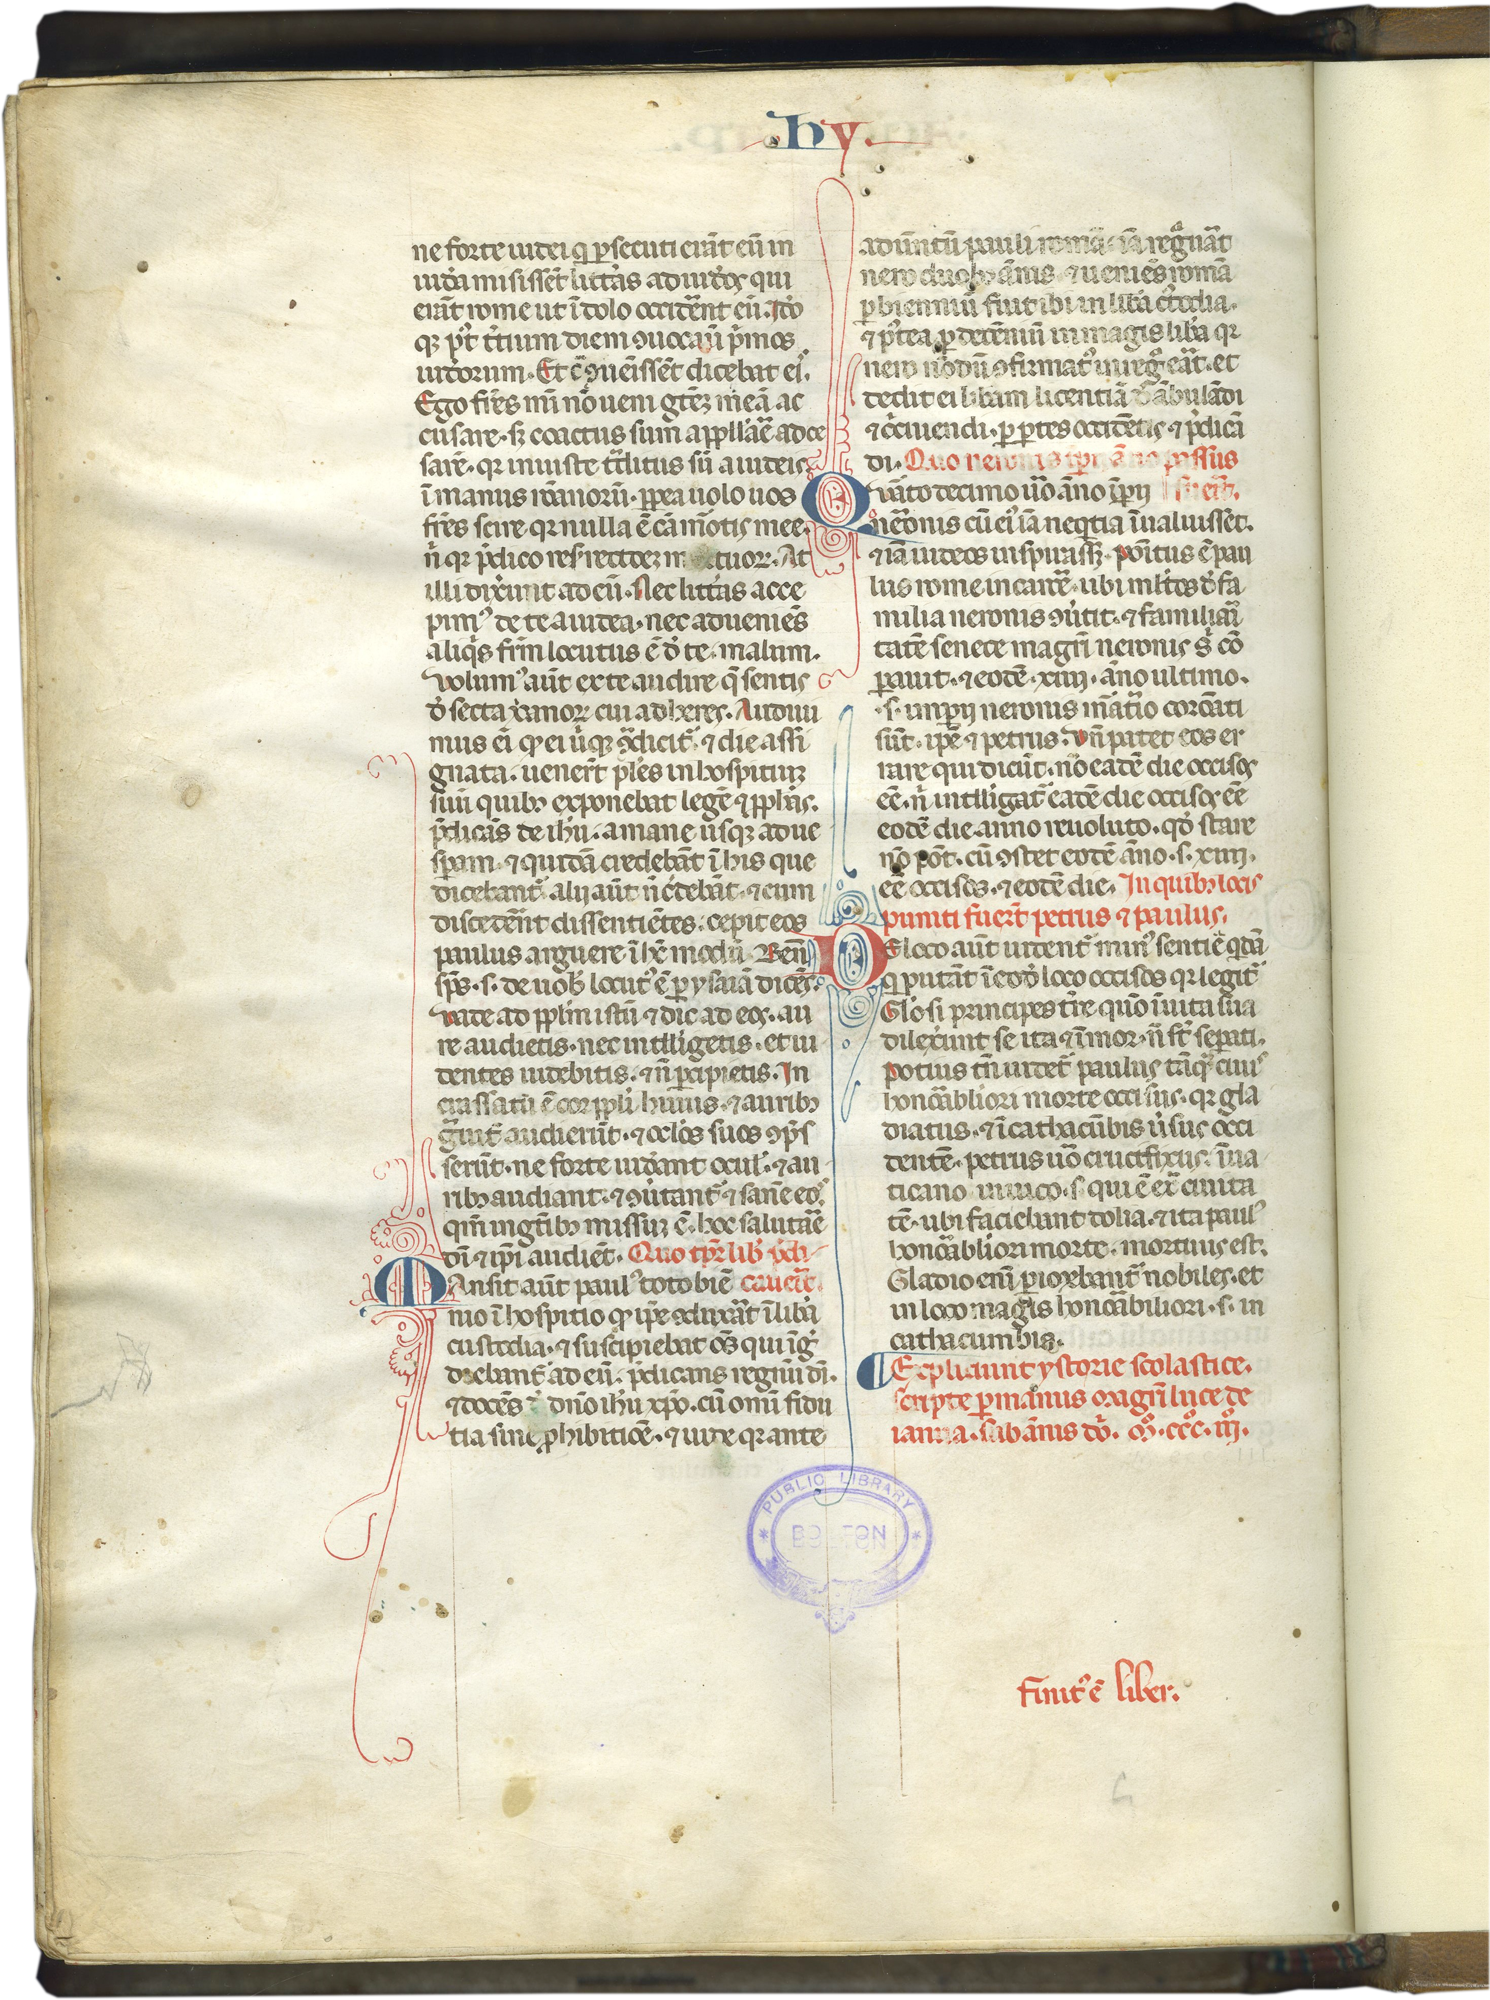 hy.
ne forte iudei q̨ ꝑsecuti erāt eū in
iudā misissēt litt̄as ad iud̓os qui
erāt rome ut ī dolo occidēnt eū. Ideo
qꝫ p̓t t̓tium diem ꝯuocaū p̓mos
iud̓orum. Et c̄ ꝯuēissēt dicebat ei.
Ego fr̄es mī nō ueni gt̄eꝫ meā ac
cusare. sꝫ coactus sum appll̓āe ad ce
sarē. qr iniuste t̄ditus sū a iudeis
ī manus rōanorū. ꝓpea uolo uos
fr̄es scire. qr nulla ē cā mōtis mee.
n̓ qr p̓dico resurectōeꝫ mortuoꝝ. At
illi dix̓unt ad eū. Nec litt̓as acce
pim᾿ de te a iudea. nec adueniēs
aliq̓s frm̄ locutus ē d̓ te. malum.
Volum᾿ aūt ex te audire q̄ sentis
d̓ secta xānoꝝ cui adheres. Audiui
mus eī qꝫ ei uꝫ ꝯ̄dicit̄. ⁊ die assi
gnata. uener̄t pl̓es in hospitiuꝫ
suū quibꝫ exponebat legē ⁊ ꝓph̓as.
p̓dicās de ihū. a mane usqꝫ ad ue
sꝑam. ⁊ quidā credebāt ī his que
dicebant̄. alij aūt n̄ c̓debāt. ⁊ cum
discederēt dissentiētes. cepit eos
paulus arguere ī hc̄ modū. Benē
sp̄s. s. de uob̓ locut᾿ ē ꝑ ysaiā dicēs.
Vade ad ppl̄m istū ⁊ dic ad eos. au
re audietis. nec intlligetis. et ui
dentes uidebitis. ⁊ n̄ ꝑcipietis. In
crassatū ē cor ppl̄i huius. ⁊ auribꝫ
g̓uit̓ audierūt. ⁊ oclōs suos ꝯp̓s
serūt. ne forte uid̓ant ocul̓. ⁊ au
ribꝫ audiant. ⁊ ꝯu̓tant̄ ⁊ sanē eos.
qm̄ in gt̄ibꝫ missuꝫ ē. hoc salutāe
dī. ⁊ ip̄i audiēt. Quo tp̄r lib̓ p̓di-
Ansit aūt paul᾿ toto biē cauerit.
nio ī hospitio qꝫ ip̄e ꝯduxāt ī libā
custodia. ⁊ suscipiebat oēs qui īg̓
diebant̄ ad eū. p̓dicans regnū dī.
⁊ docēs d̓ dn̄o ihū xp̄o. cū omī fidu
tia sine ꝓhibitiōe. ⁊ uide qr ante
aduntū pauli romā. iā regnāt
nero duobꝫ ānis. ⁊ ueniēs romā
ꝑ biennium fiut ibi in libā c̓todia.
⁊ p̓tea ꝑ decēniū in magis lib̓a qr
nero nōdū ꝯfirmat᾿ in reg̓ eāt. et
dedit ei lib̓am licentiā dābulādi
⁊ c̓cuiuendi. ꝑ ptes occidētis ⁊ p̓dicā
di. Quo neronis ip̄ij āno passus
Vāto decimo uō āno īꝑij
neronis cū ei᾿ iā neqtia īualuisset.
⁊ iā iudeos inspirassꝫ. positus ē pau
lus rome in carcē. ubi ml̓tos d̓ fa
milia neronis ꝯu̓tit. ⁊ familiari
tatē senece magr̄i neronis s̓ cō
ꝑauit. ⁊ eodē. xiiij. āno ultimo.
.s. imꝑij neronis māt̓io coronati
sūt. ip̄e ⁊ petrus. Vn̄ patet eos er
rare qui dicūt. nō eadē die occisos
eē. n̓ intlligat̄ eadē die occisos eē
eodē die anno reuoluto. qd̓ stare
nō pōt. cū ꝯstet eodē āno. s. xiiij.
eē occisos. ⁊ eodē die. In quibꝫ locis
puniti fuer̄t petrus ⁊ paulus.
E loco aūt uident̄ min᾿ sentiē qdā
q̨ putāt ī eod̓ loco occisos qr legit̄
Glōsi principes tr̄e quō ī uita sua
dilex̓unt se ita ⁊ ī mor. n̄ st̄ seꝑati.
Potius tn̄ uidet̄ paulus tāqꝫ ciuis
honoābliori morte occisus. qr gla
diatus. ⁊ ī cathacūbis u̓sus occi
dentē. petrus uō crucifixus. ī ua
ticano uiuico. s. qui ē ex̄ ciuita
tē. ubi faciebunt dolia. ⁊ ita paul᾿
honoābliori morte. mortuus est.
Gladio enī ꝑiorebant̄ nobiles. et
in loco magis honoābiliori. s. in
cathacumbis.
Expliciunt ystorie scolastice.
scripte ꝑ manus oxagr̄i luce de
ianua. sub ānis dō. M̊. ccc̊. iij̊.
PUBLIC LIBRARY
BOSTON
Finit᾿ ē liber.